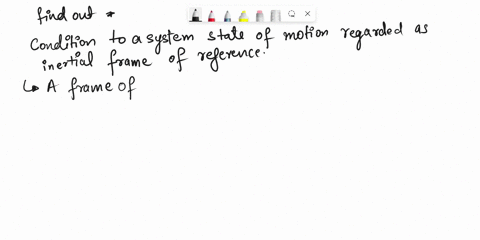 find out *
Condition to a system state of motion regarded as
inertial frame of reference.
↳ A frame of